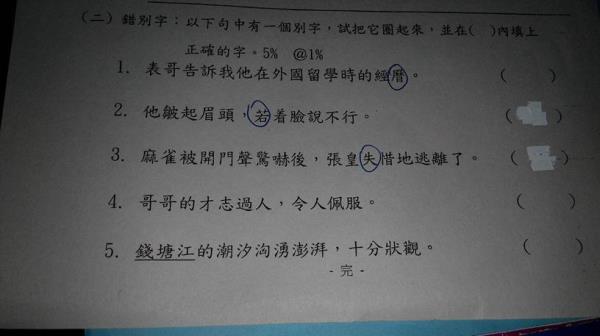 （二）錯別字：以下句中有一個別字，試把它圈起來，並在(　)內填上
正確的字。5% @1%
1. 表哥告訴我他在外國留學時的經曆。（　　）
2. 他皺起眉頭，若着臉說不行。（　　）
3. 麻雀被開門聲驚嚇後，張皇失惜地逃離了。（　　）
4. 哥哥的才志過人，令人佩服。（　　）
5. 錢塘江的潮汐洶湧澎湃，十分狀觀。（　　）
- 完 -